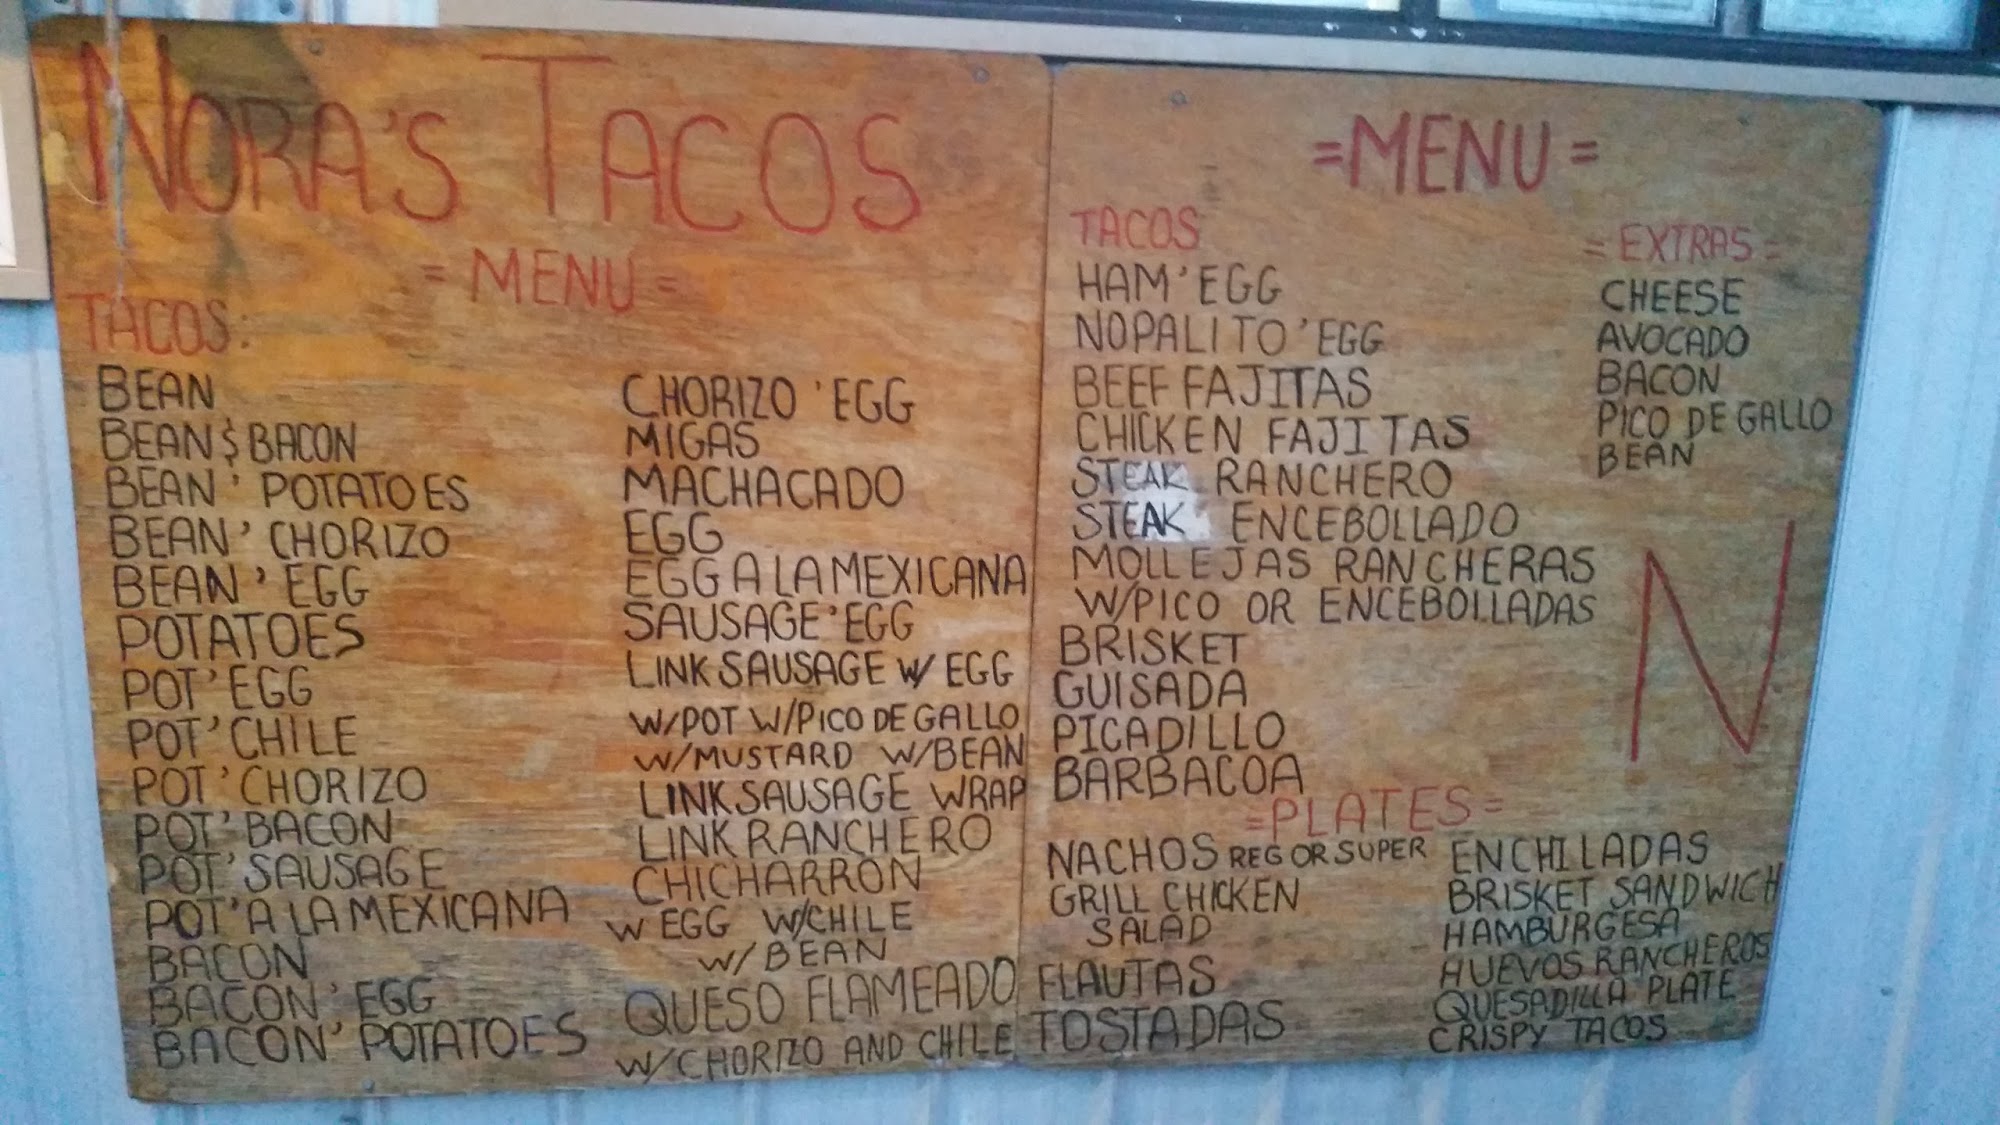 NORA'S TACOS
= MENU =
TACOS:
BEAN
BEAN $ BACON
BEAN ' POTATOES
BEAN ' CHORIZO
BEAN ' EGG
POTATOES
POT' EGG
POT' CHILE
POT' CHORIZO
POT' BACON
POT' SAUSAGE
POT' A LA MEXICANA
BACON
BACON' EGG
BACON' POTATOES
CHORIZO 'EGG
MIGAS
MACHACADO
EGG
EGG A LA MEXICANA
SAUSAGE 'EGG
LINK SAUSAGE W/ EGG
W/POT W/PICO DE GALLO
W/MUSTARD W/BEAN
LINK SAUSAGE WRAP
LINK RANCHERO
CHICHARRON
W EGG W/CHILE
W/ BEAN
QUESO FLAMEADO
W/CHORIZO AND CHILE
=MENU=
TACOS
HAM'EGG
NOPALITO 'EGG
BEEF FAJITAS
CHICKEN FAJITAS
STEAK RANCHERO
STEAK ENCEBOLLADO
MOLLEJAS RANCHERAS
W/PICO OR ENCEBOLLADAS
BRISKET
GUISADA
PICADILLO
BARBACOA
= EXTRAS =
CHEESE
AVOCADO
BACON
PICO DE GALLO
BEAN
N
=PLATES=
NACHOS REG OR SUPER
GRILL CHICKEN
SALAD
FLAUTAS
TOSTADAS
ENCHILADAS
BRISKET SANDWICH
HAMBURGESA
HUEVOS RANCHEROS
QUESADILLA PLATE
CRISPY TACOS